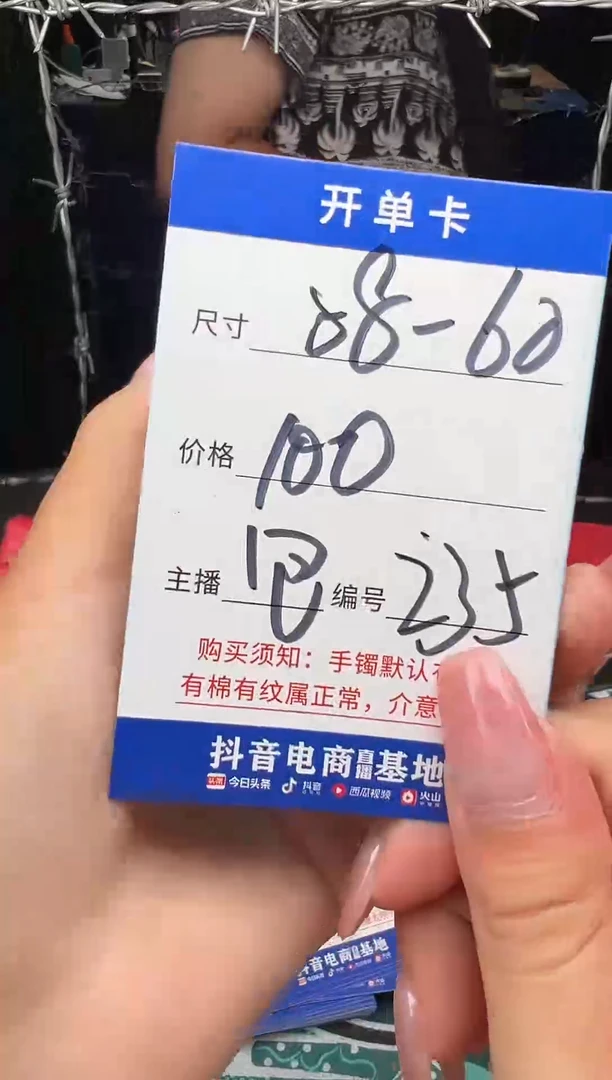 开单卡
尺寸 58-60
价格 100
主播 编号 235
购买须知：手镯默认
有棉有纹属正常，介意
抖音电商直播基地
头条 今日头条 抖音 西瓜视频 火山
抖音电商直播基地